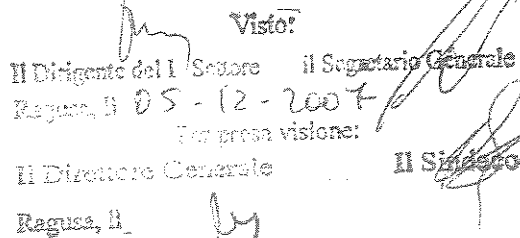 Visto:
Il Dirigente del I Settore il Segretario Generale
Ragusa, li 05-12-2007
Per presa visione:
Il Direttore Generale Il Sindaco
Ragusa, li